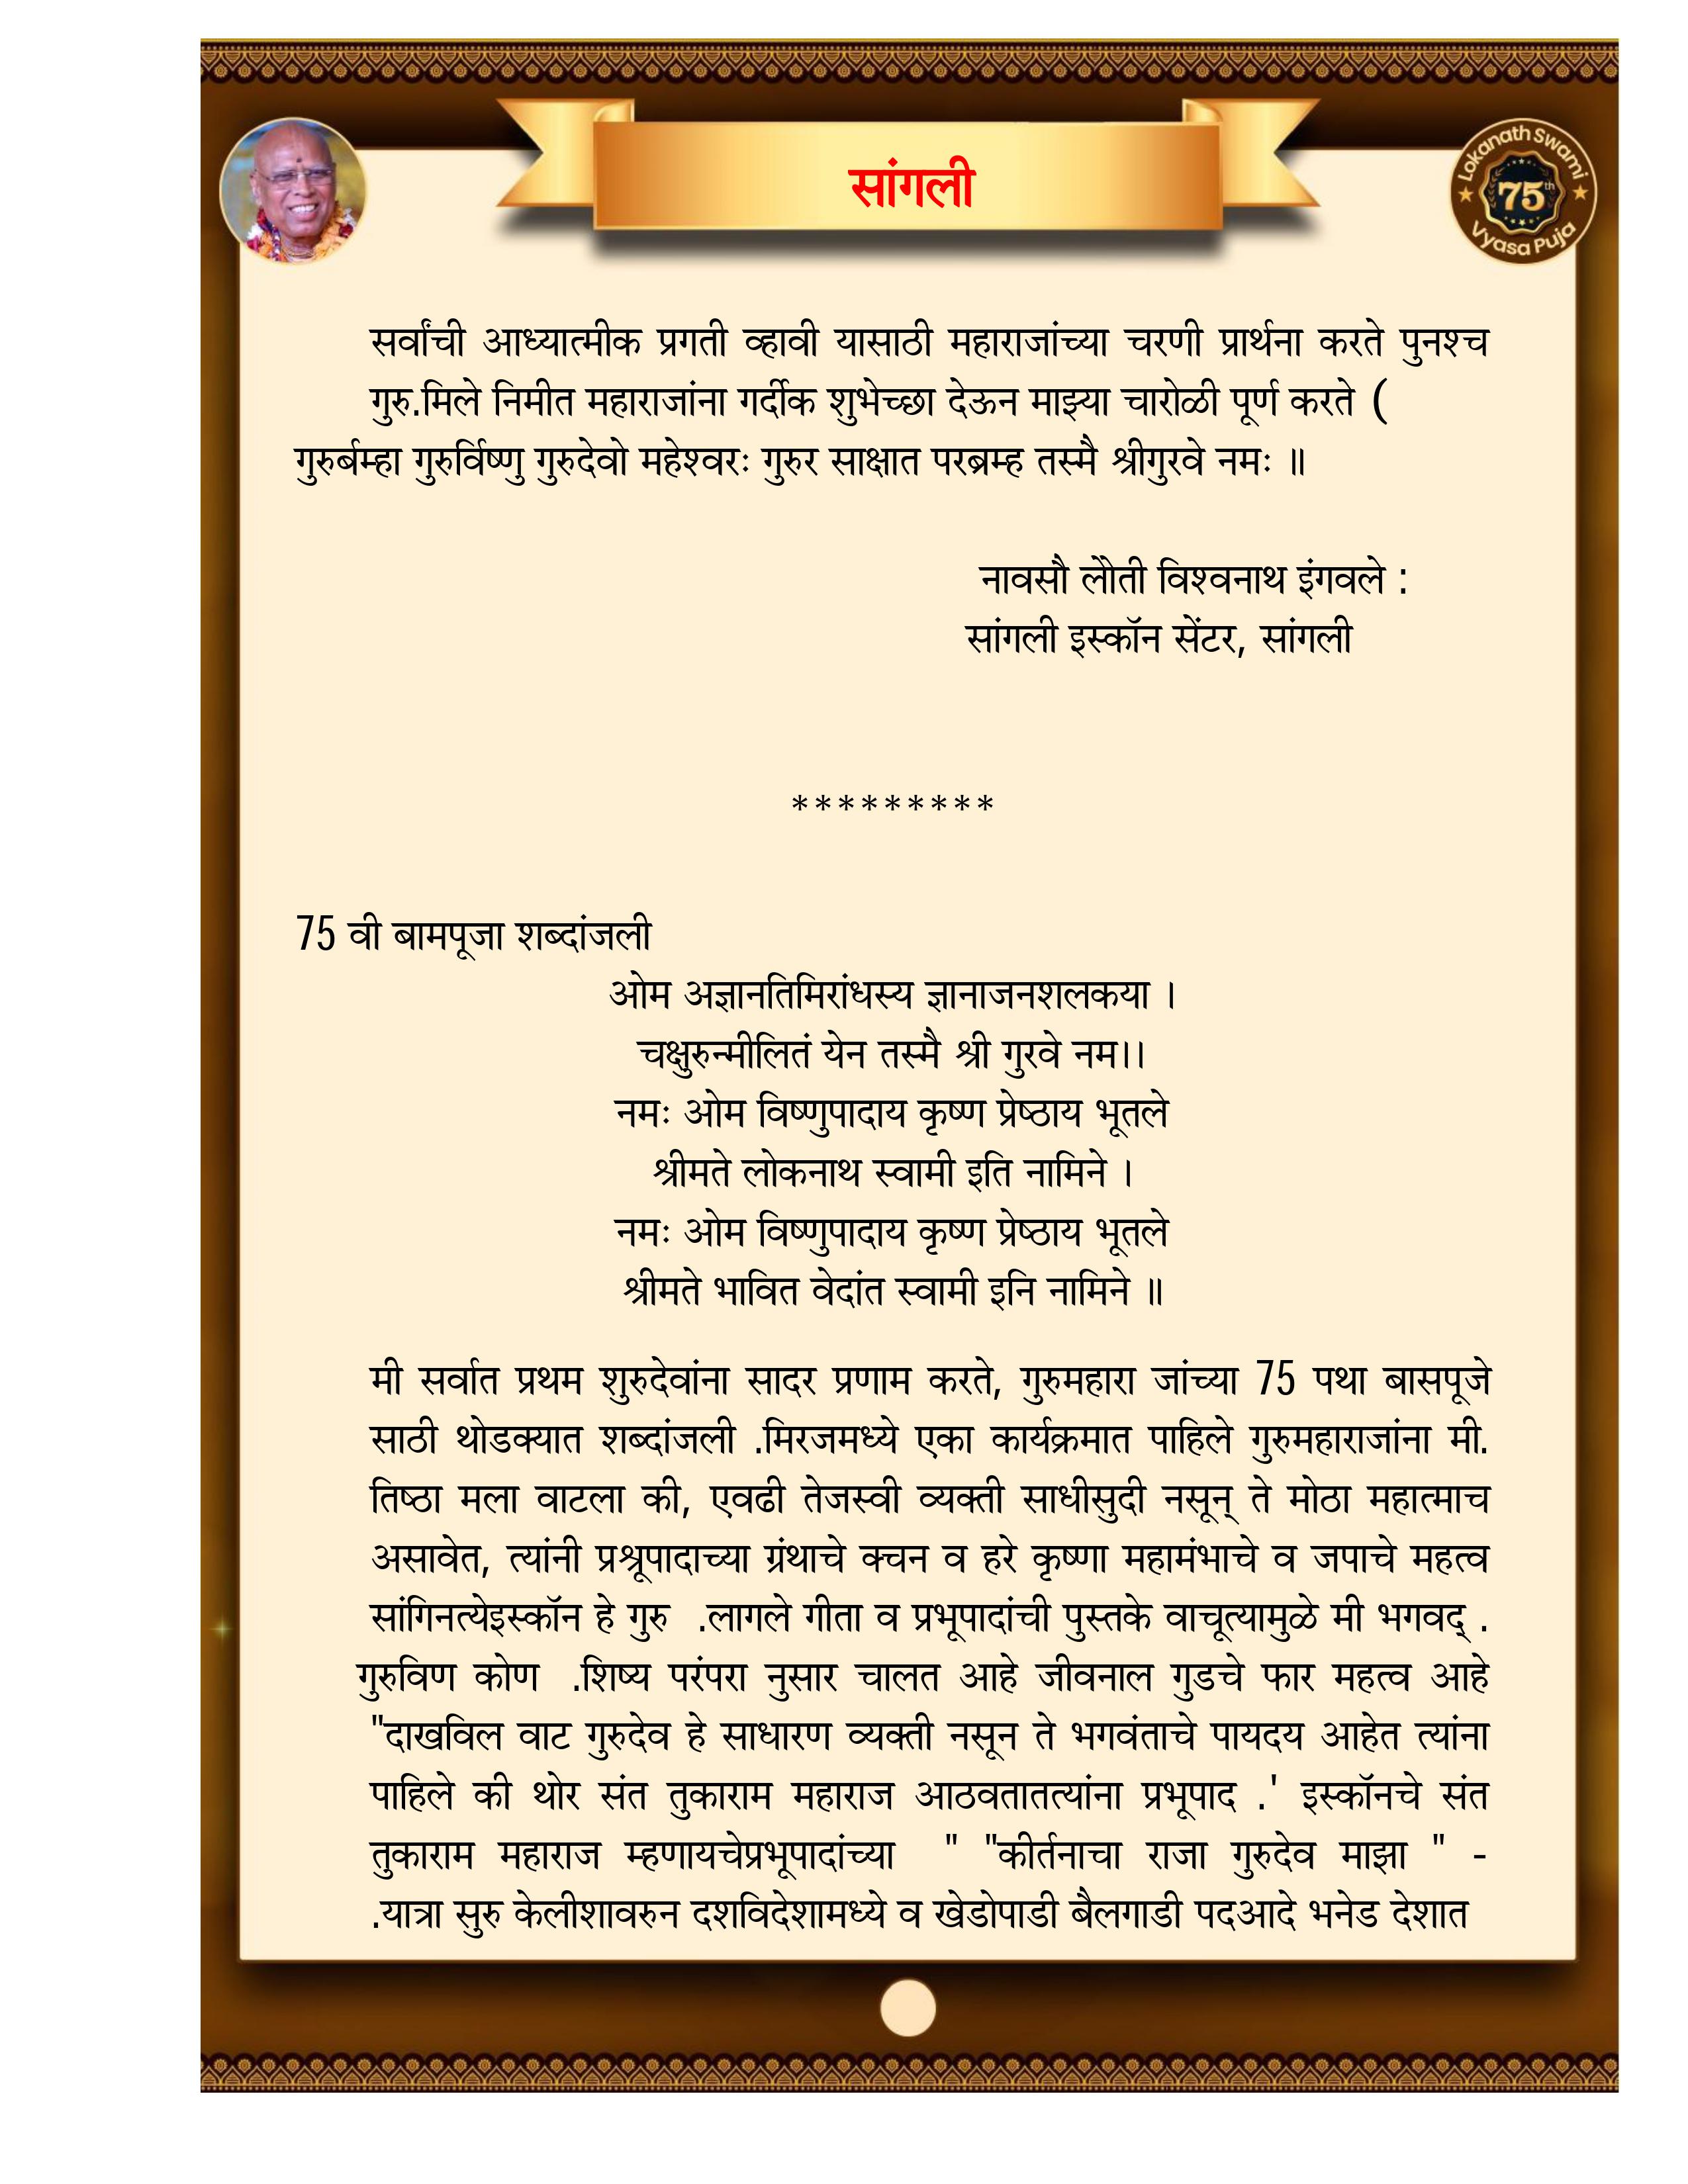 सांगली
Lokanath Swami
75th
Vyasa Puja
सर्वांची आध्यात्मीक प्रगती व्हावी यासाठी महाराजांच्या चरणी प्रार्थना करते पुनश्च
गुरु.मिले निमीत महाराजांना गर्दीक शुभेच्छा देऊन माझ्या चारोळी पूर्ण करते (
गुरुर्बम्हा गुरुर्विष्णु गुरुदेवो महेश्वरः गुरुर साक्षात परब्रम्ह तस्मै श्रीगुरवे नमः ॥
नावसौ लोेती विश्वनाथ इंगवले :
सांगली इस्कॉन सेंटर, सांगली
*********
75 वी बामपूजा शब्दांजली
ओम अज्ञानतिमिरांधस्य ज्ञानाजनशलकया ।
चक्षुरुन्मीलितं येन तस्मै श्री गुरवे नम।।
नमः ओम विष्णुपादाय कृष्ण प्रेष्ठाय भूतले
श्रीमते लोकनाथ स्वामी इति नामिने ।
नमः ओम विष्णुपादाय कृष्ण प्रेष्ठाय भूतले
श्रीमते भावित वेदांत स्वामी इनि नामिने ॥
मी सर्वात प्रथम शुरुदेवांना सादर प्रणाम करते, गुरुमहारा जांच्या 75 पथा बासपूजे
साठी थोडक्यात शब्दांजली .मिरजमध्ये एका कार्यक्रमात पाहिले गुरुमहाराजांना मी.
तिष्ठा मला वाटला की, एवढी तेजस्वी व्यक्ती साधीसुदी नसून् ते मोठा महात्माच
असावेत, त्यांनी प्रश्रूपादाच्या ग्रंथाचे क्चन व हरे कृष्णा महामंभाचे व जपाचे महत्व
सांगिनत्येइस्कॉन हे गुरु .लागले गीता व प्रभूपादांची पुस्तके वाचूत्यामुळे मी भगवद् .
गुरुविण कोण .शिष्य परंपरा नुसार चालत आहे जीवनाल गुडचे फार महत्व आहे
"दाखविल वाट गुरुदेव हे साधारण व्यक्ती नसून ते भगवंताचे पायदय आहेत त्यांना
पाहिले की थोर संत तुकाराम महाराज आठवतातत्यांना प्रभूपाद .' इस्कॉनचे संत
तुकाराम महाराज म्हणायचेप्रभूपादांच्या " "कीर्तनाचा राजा गुरुदेव माझा " -
.यात्रा सुरु केलीशावरुन दशविदेशामध्ये व खेडोपाडी बैलगाडी पदआदे भनेड देशात